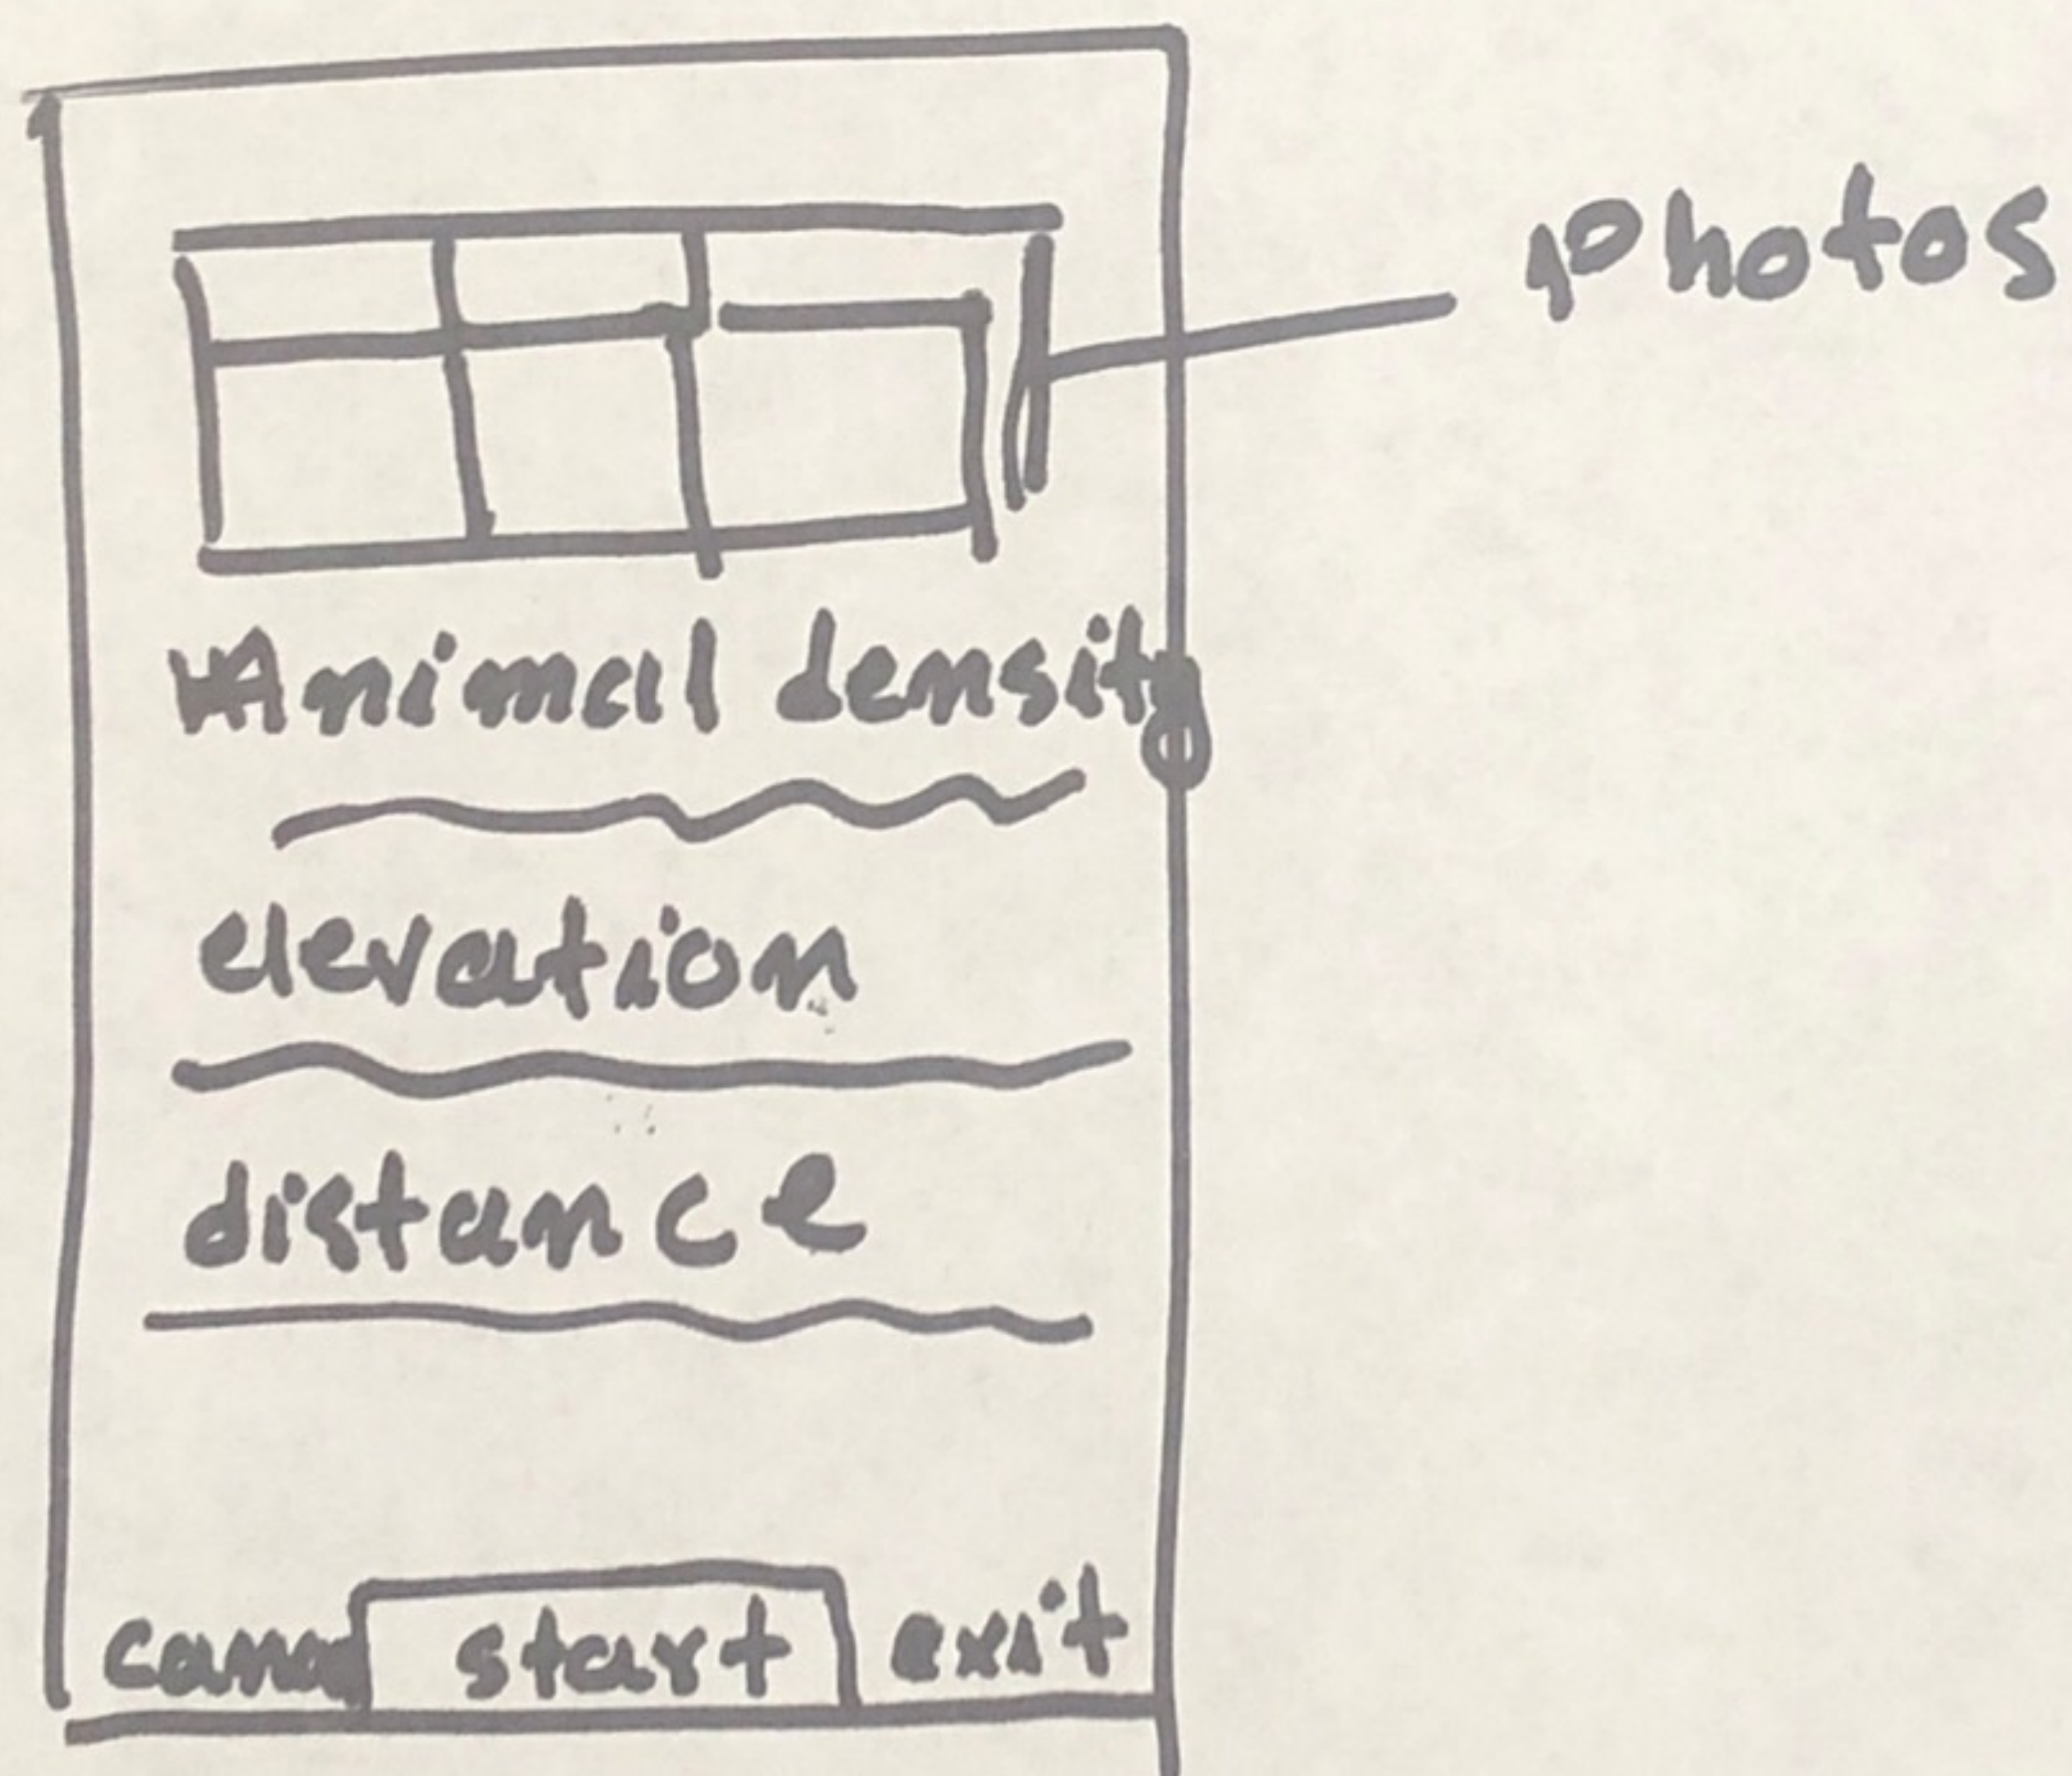 Photos
Animal density
elevation
distance
start exit